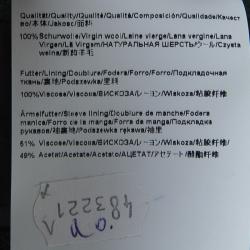 Qualität/Quality/Qualité/Qualità/Composición/Qualidade/Качест
во/本体/Jakosc/面料
100%Schurwolle/Virgin wool/Laine vierge/Lana vergine/Lana
Virgen/Lã Virgem/НАТУРАЛЬНАЯ ШЕРСТЬ/ウール/Czysta
welna/新的羊毛
Futter/Lining/Doublure/Fodera/Forro/Forro/Подкладочная
ткань/裏地/Podszewka/里料
100%Viscose/Viscose/ВИСКОЗА/レーヨン/Wiskoza/粘胶纤维
Ärmelfutter/Sleeve lining/Doublure de manche/Fodera
manica/Forro de la manga/Forro da manga/Подкладка
рукавов/袖裏地/Podszewka rękawa/袖里
51% Viscose/Viscose/ВИСКОЗА/レーヨン/Wiskoza/粘胶纤维
49% Acetat/Acetate/Acetato/АЦЕТАТ/アセテート/醋酯纤维
483221